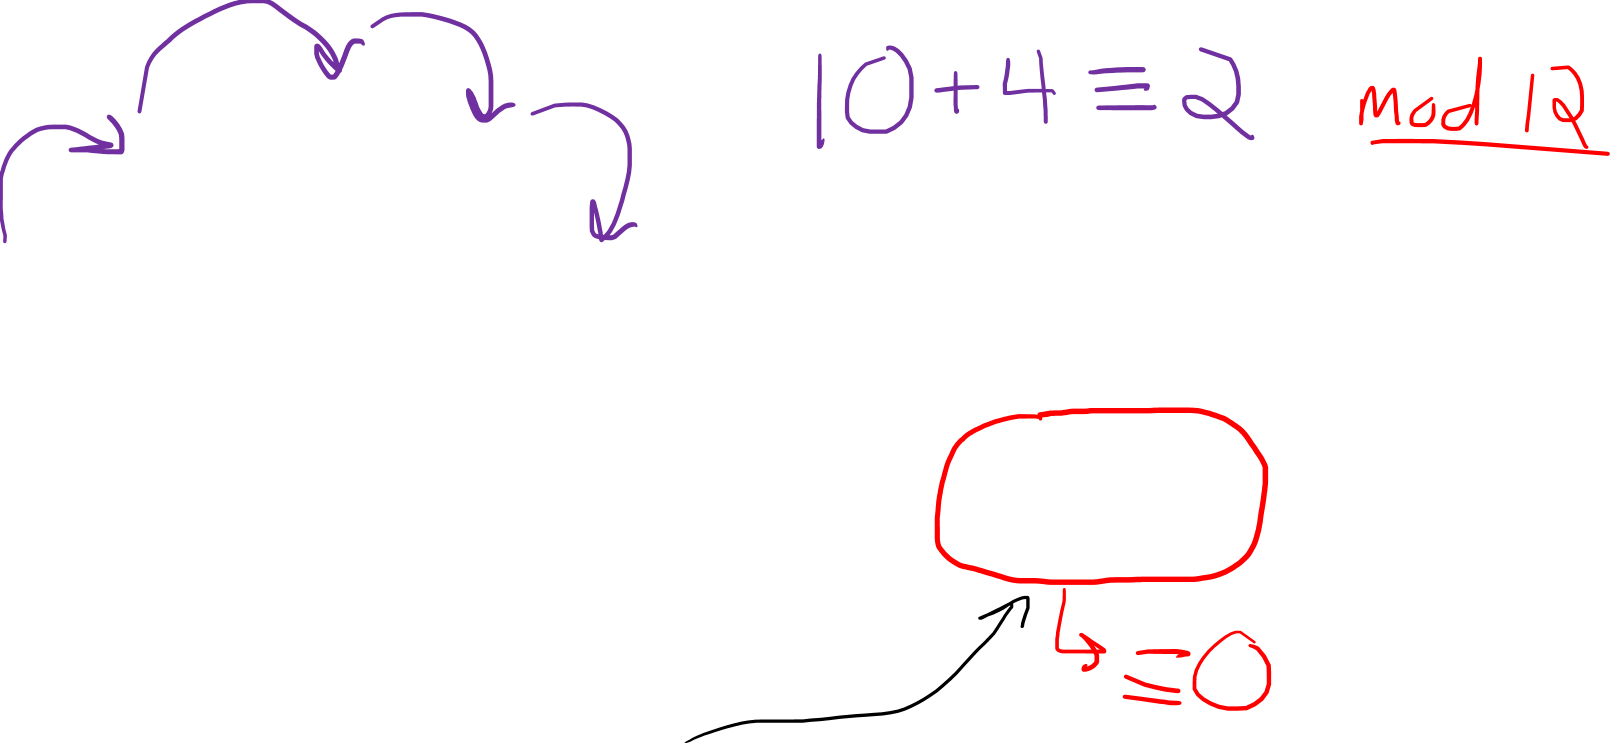 10+4≡2 mod 12
≡0